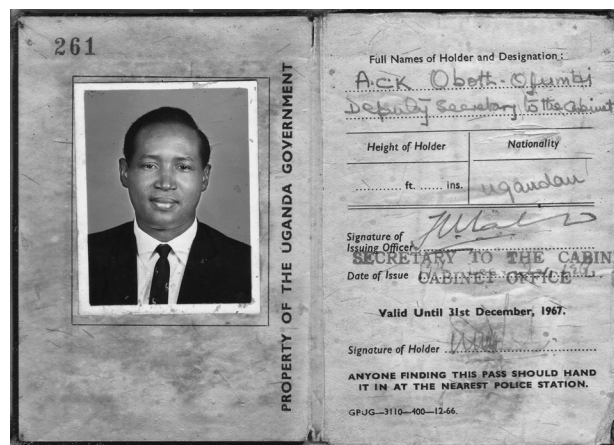 261
PROPERTY OF THE UGANDA GOVERNMENT
Full Names of Holder and Designation:
A.C.K Oboth-Ofumbi
Deputy Secretary to the Cabinet
Height of Holder
Nationality
........ ft. ...... ins.
Ugandan
Signature of
Issuing Officer
SECRETARY TO THE CABIN
Date of Issue
CABINET OFFICE
Valid Until 31st December, 1967.
Signature of Holder
ANYONE FINDING THIS PASS SHOULD HAND
IT IN AT THE NEAREST POLICE STATION.
GPUG—3110—400—12-66.